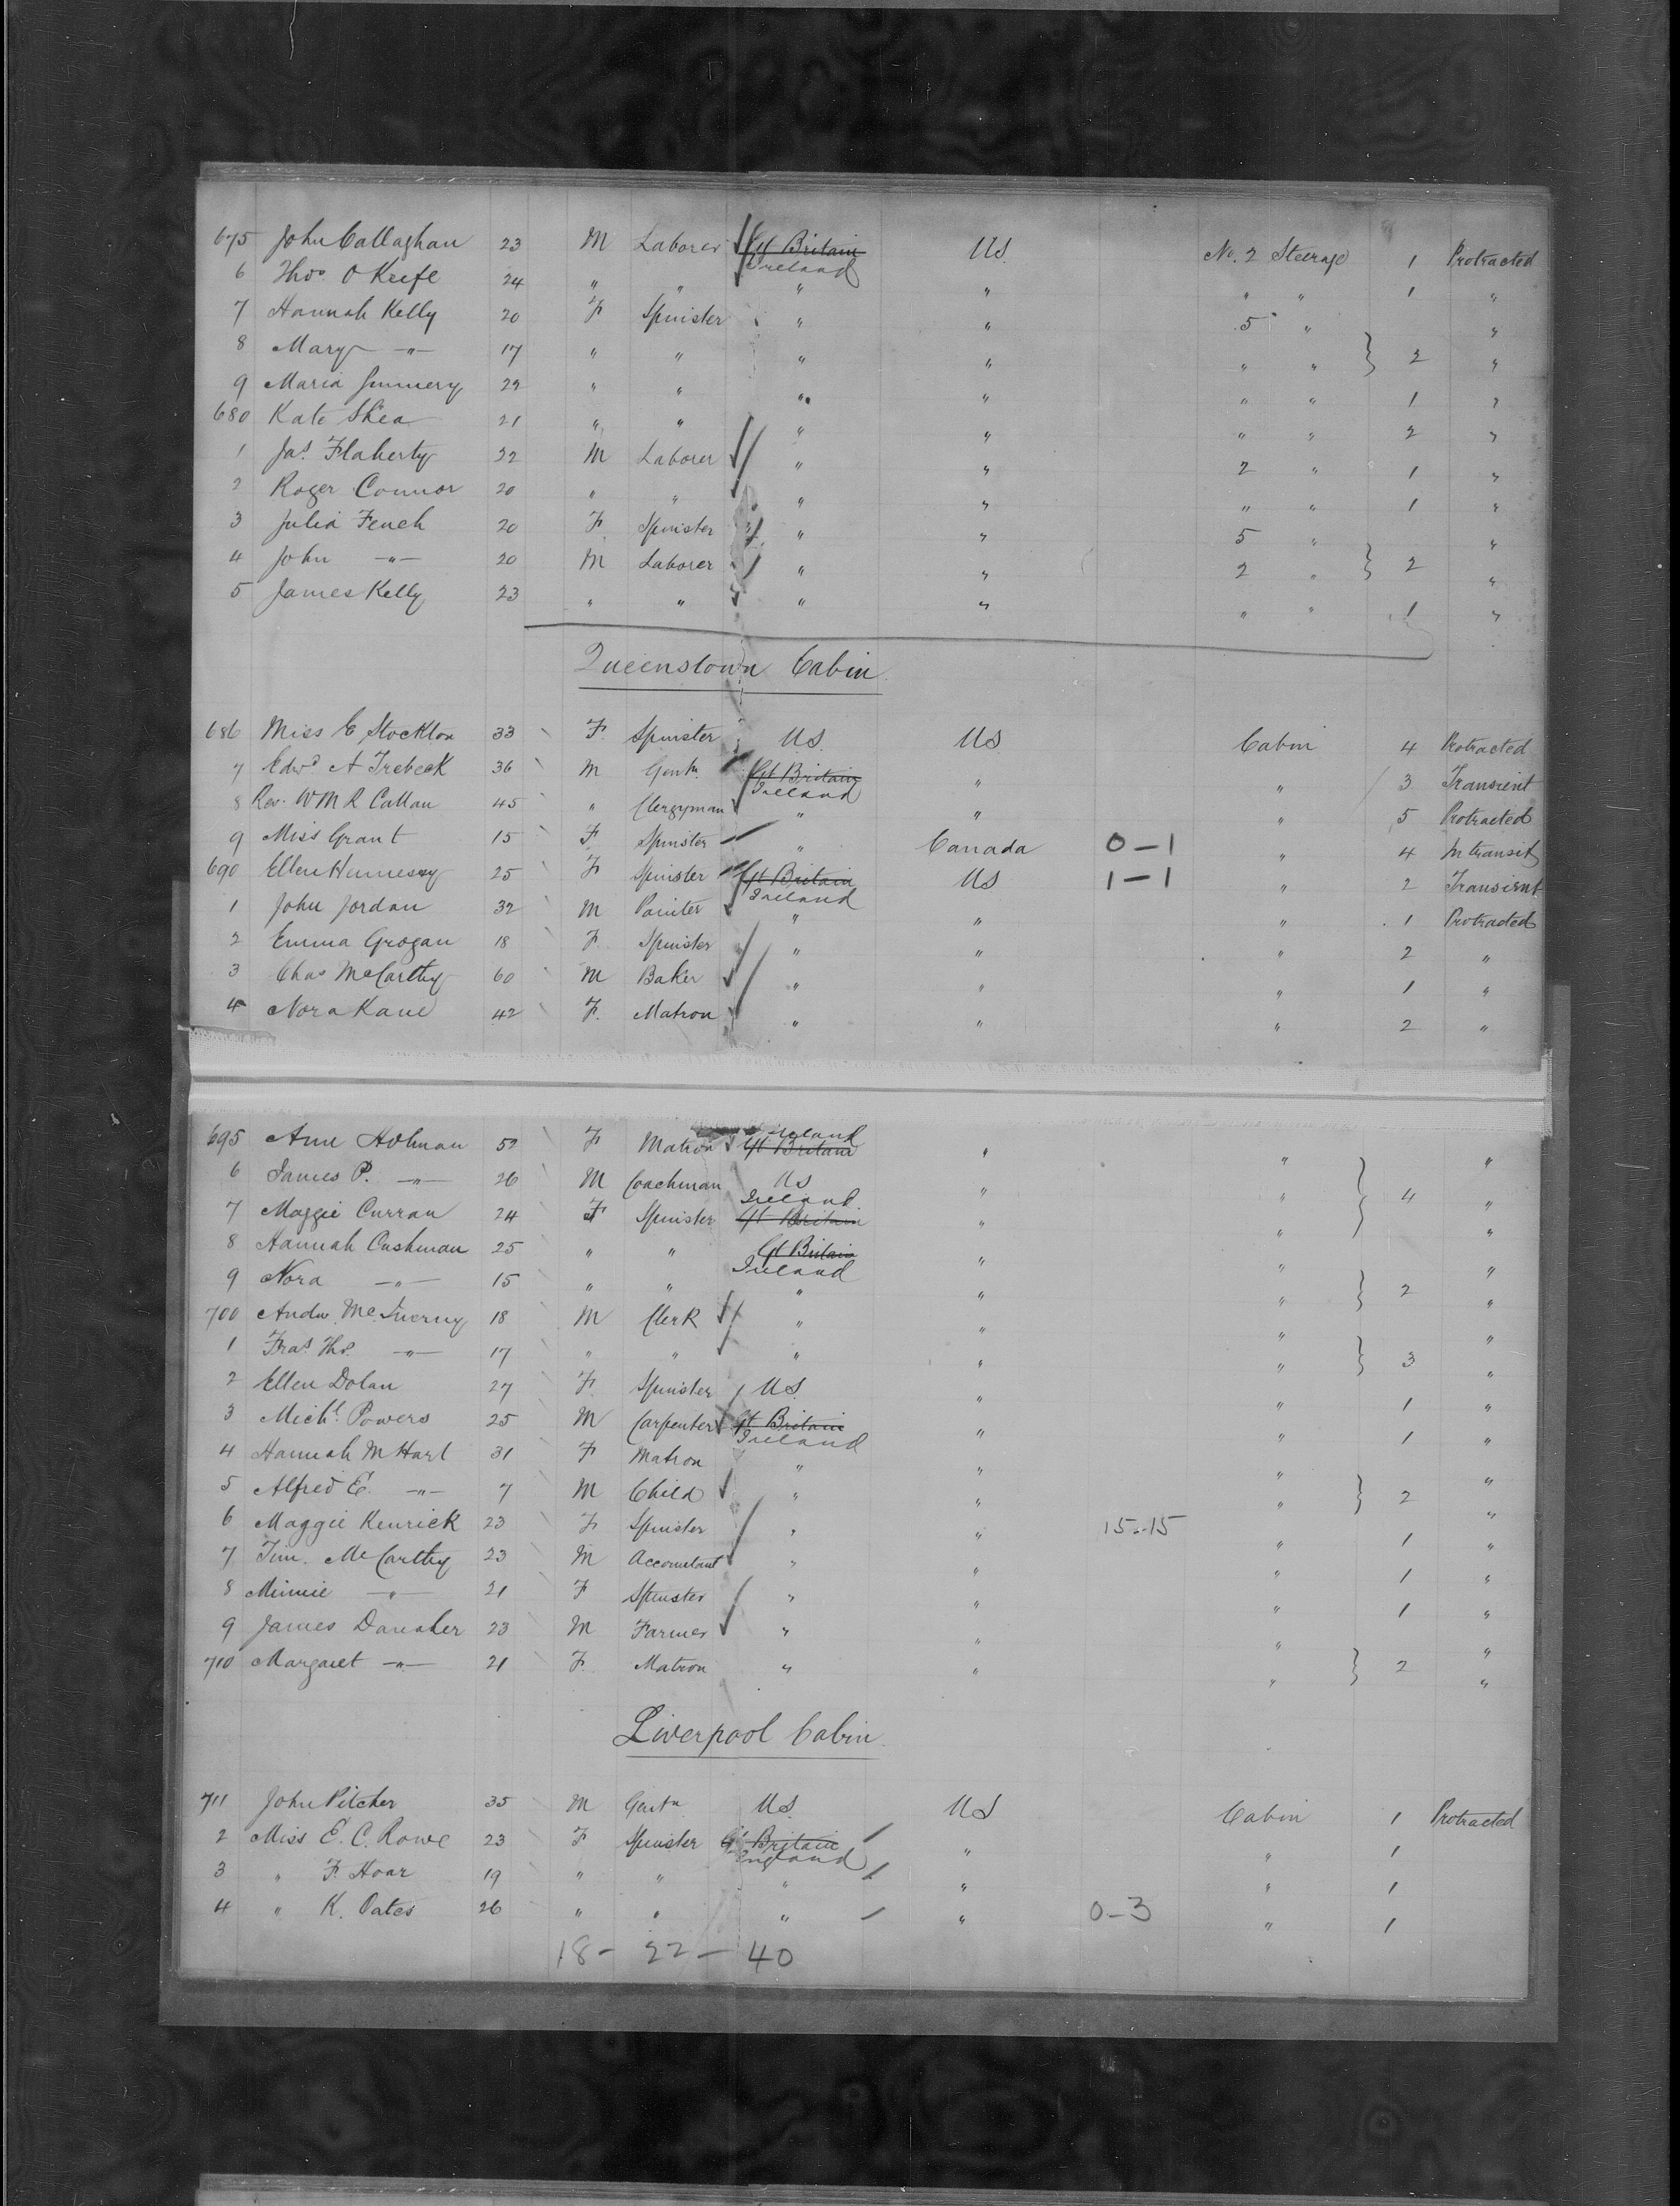 675 John Callaghan 23 M Laborer Gt Britain Ireland US. No. 2 Steerage 1 Protracted
6 Thos. O Keefe 24 " " " " " " 1 "
7 Hannah Kelly 20 F Spinster " " 5 " "
8 Mary —"— 17 " " " " " " } 2 "
9 Maria 29 " " " " " " 1 "
680 Kate Shea 21 " " " " " " 2 "
1 Jas. Flaherty 22 M Laborer " " 2 " 1 "
2 Roger Connor 20 " " " " " " 1 "
3 Julia 20 F Spinster " " 5 " "
4 John —"— 20 M Laborer " " 2 " } 2 "
5 James Kelly 23 " " " " " " 1 "
Queenstown Cabin.
686 Miss E Stockton 33 F. Spinster U.S. US Cabin 4 Protracted
7 Edwd A Trebeck 36 M Gentn. Gt Britain Ireland " " 3 Transient
8 Rev. WM R Callan 45 " Clergyman " " " 5 Protracted
9 Miss Grant 15 F Spinster " Canada 0-1 " 4 In transit
690 Ellen Hennessy 25 F Spinster Gt Britain Ireland US 1-1 " 2 Transient
1 John Jordan 32 M Painter " " " 1 Protracted
2 Emma Grogan 18 F. Spinster " " " 2 "
3 Chas McCarthy 60 M Baker " " " 1 "
4 Nora Kane 42 F. Matron " " " 2 "
695 Ann Holman 52 F Matron Ireland Gt Britain " " "
6 James P. —"— 26 M Coachman US " " } 4 "
7 Maggie Curran 24 F Spinster Ireland Gt Britain " " "
8 Hannah Cashman 25 " " Gt Britain Ireland " " "
9 Nora —"— 15 " " " " " } 2 "
700 Andw. McInerny 18 M Clerk " " " "
1 Fras. Ths. —"— 17 " " " " " } 3 "
2 Ellen Dolan 27 F. Spinster U.S. " " 1 "
3 Michl. Powers 25 M Carpenter Gt Britain Ireland " " 1 "
4 Hannah M Hart 31 F Matron " " " "
5 Alfred E. —"— 7 M Child " " " } 2 "
6 Maggie Kenrick 23 F Spinster " " 15-15 " 1 "
7 Tim. McCarthy 23 M Accountant " " " 1 "
8 Minnie —"— 21 F Spinster " " " 1 "
9 James Danaher 23 M Farmer " " " "
710 Margaret —"— 21 F. Matron " " " } 2 "
Liverpool Cabin.
711 John Pitcher 35 M Gentn U.S. US Cabin 1 Protracted
2 Miss E. C. Rowe 23 F Spinster Gt Britain England " " 1
3 " F. Hoar 19 " " " " " 1
4 " K. Oates 26 " " " " 0-3 " 1
18- 22- 40